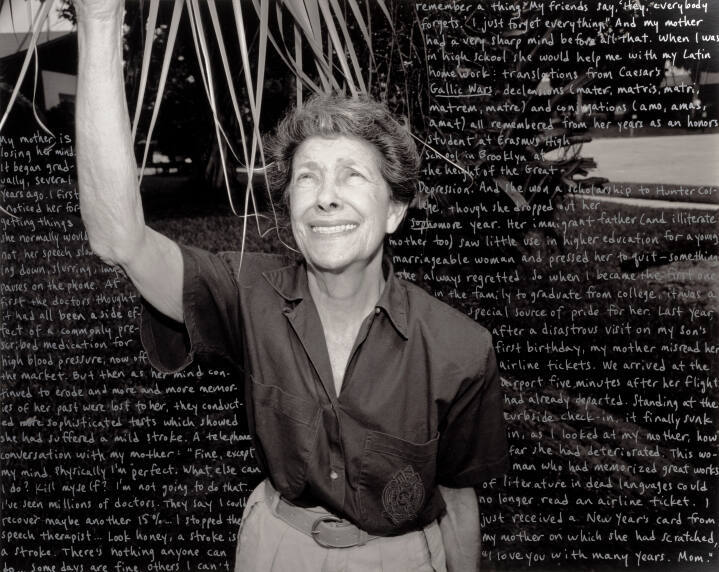 My mother is
losing her mind.
It began grad-
ually, several
years ago. I first
noticed her for-
getting things
she normally would
not, her speech slow-
ing down, slurring, long
pauses on the phone. At
first the doctors thought
it had all been a side ef-
fect of a commonly pre-
scribed medication for
high blood pressure, now off
the market. But then as her mind con-
tinued to erode and more and more memor-
ies of her past were lost to her, they conduct-
ed more sophisticated tests which showed
she had suffered a mild stroke. A telephone
conversation with my mother: "Fine, except
my mind. Physically I'm perfect. What else can
I do? Kill myself? I'm not going to do that...
I've seen millions of doctors. They say I could
recover maybe another 15%... I stopped the
speech therapist... Look honey, a stroke is
a stroke. There's nothing anyone can
do... some days are fine, others I can't
remember a thing. My friends say, 'Hey, everybody
forgets.' I just forget everything!" And my mother
had a very sharp mind before all that. When I was
in high school she would help me with my Latin
homework: translations from Caesar's
Gallic Wars, declensions (mater, matris, matri,
matrem, matre) and conjugations (amo, amas,
amat) all remembered from her years as an honors
student at Erasmus High
School in Brooklyn at
the height of the Great
Depression. And she won a scholarship to Hunter Col-
lege, though she dropped out her
sophomore year. Her immigrant father (and illiterate
mother too) saw little use in higher education for a young
marriageable woman and pressed her to quit - something
she always regretted. So when I became the first one
in the family to graduate from college, it was a
special source of pride for her. Last year,
after a disastrous visit on my son's
first birthday, my mother misread her
airline tickets. We arrived at the
airport five minutes after her flight
had already departed. Standing at the
curbside check-in, it finally sunk
in, as I looked at my mother, how
far she had deteriorated. This wo-
man who had memorized great works
of literature in dead languages could
no longer read an airline ticket. I
just received a New Year's card from
my mother on which she had scratched,
"I love you with many years. Mom."